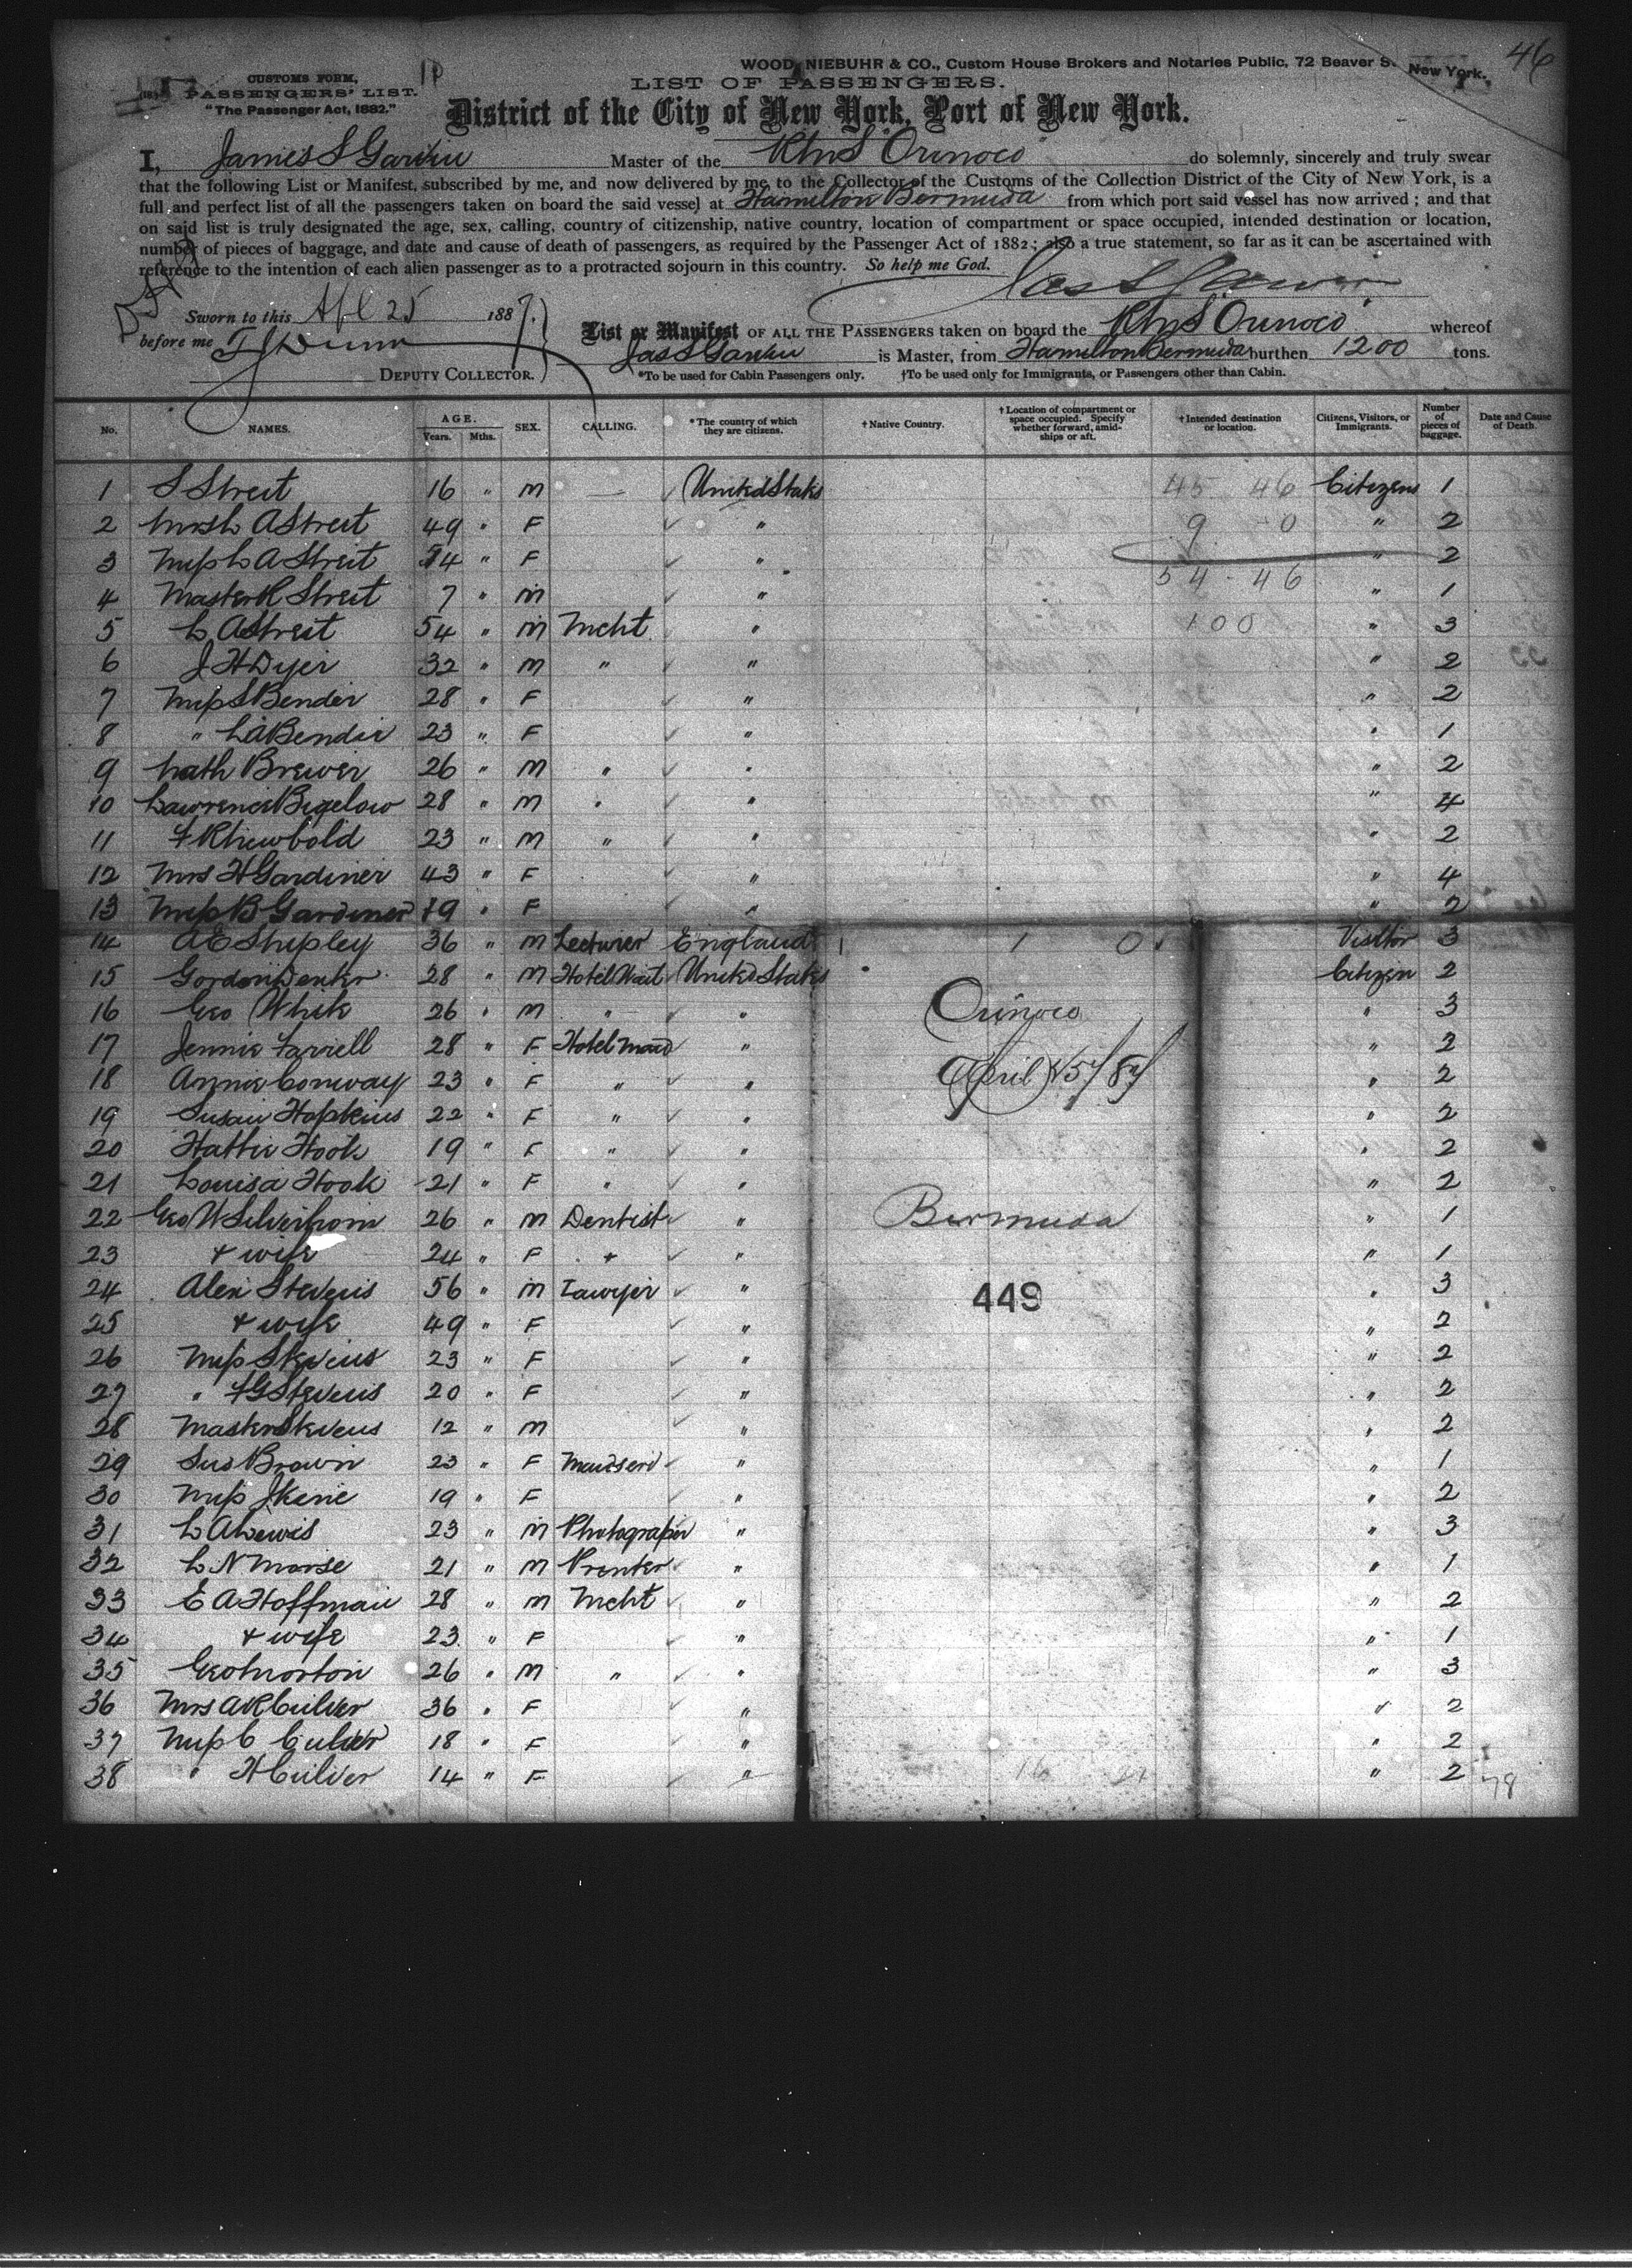 46
WOOD, NIEBUHR & CO., Custom House Brokers and Notaries Public, 72 Beaver S. New York.
CUSTOMS FORM,
PASSENGERS' LIST.
"The Passenger Act, 1882."
LIST OF PASSENGERS.
District of the City of New York, Port of New York.
I, James S Garvin Master of the RMS Orinoco do solemnly, sincerely and truly swear
that the following List or Manifest, subscribed by me, and now delivered by me to the Collector of the Customs of the Collection District of the City of New York, is a
full and perfect list of all the passengers taken on board the said vessel at Hamilton Bermuda from which port said vessel has now arrived; and that
on said list is truly designated the age, sex, calling, country of citizenship, native country, location of compartment or space occupied, intended destination or location,
number of pieces of baggage, and date and cause of death of passengers, as required by the Passenger Act of 1882; also a true statement, so far as it can be ascertained with
reference to the intention of each alien passenger as to a protracted sojourn in this country. So help me God.
Jas S Garvin
Sworn to this Apl 25 1887.
before me T J Dunn
DEPUTY COLLECTOR.
List or Manifest OF ALL THE PASSENGERS taken on board the RMS Orinoco whereof
Jas S Garvin is Master, from Hamilton Bermuda burthen 1200 tons.
*To be used for Cabin Passengers only. †To be used only for Immigrants, or Passengers other than Cabin.
No. NAMES. AGE. Years. Mths. SEX. CALLING. *The country of which they are citizens. †Native Country. †Location of compartment or space occupied. Specify whether forward, amidships or aft. †Intended destination or location. Citizens, Visitors, or Immigrants. Number of pieces of baggage. Date and Cause of Death.
1 S Streit 16 " M — United States 45 46 Citizens 1
2 Mrs L A Streit 49 " F " 9 0 " 2
3 Miss L A Streit 14 " F " " 2
54 46
4 Master R Streit 7 " M " " 1
5 L A Streit 54 " M Mcht " 100 " 3
6 J H Dyer 32 " M " " " 2
7 Miss S Bender 28 " F " " 2
8 " L A Bender 23 " F " " 1
9 Nath Brewer 26 " M " " " 2
10 Lawrence Bigelow 28 " M " " " 4
11 F R Newbold 23 " M " " " 2
12 Mrs H Gardiner 43 " F " " 4
13 Miss B Gardiner 19 " F " " 2
14 A E Shipley 36 " M Lecturer England 1 1 0 Visitor 3
15 Gordon Denter 28 " M Hotel Wait United States Citizen 2
16 Geo White 26 " M " " " 3
Orinoco
17 Jennie Farrell 28 " F Hotel Maid " " 2
18 Annie Conway 23 " F " " " 2
April 25/87
19 Susan Hopkins 22 " F " " " 2
20 Hattie Hook 19 " F " " " 2
21 Louisa Hook 21 " F " " " 2
22 Geo W Silverhorn 26 " M Dentist " Bermuda " 1
23 + wife 24 " F + " " 1
24 Alex Stevens 56 " M Lawyer " 449 " 3
25 + wife 49 " F " " 2
26 Miss Stevens 23 " F " " 2
27 " F G Stevens 20 " F " " 2
28 Master Stevens 12 " M " " 2
29 Sus Brown 23 " F Maidserv " " 1
30 Miss J Kene 19 " F " " 2
31 L A Lewis 23 " M Photograper " " 3
32 L N Morse 21 " M Prenter " " 1
33 E A Hoffman 28 " M Mcht " " 2
34 + wife 23 " F " " 1
35 Geo Norton 26 " M " " " 3
36 Mrs A R Culver 36 " F " " 2
37 Miss C Culver 18 " F " " 2
38 " H Culver 14 " F " 16 21 " 2
78